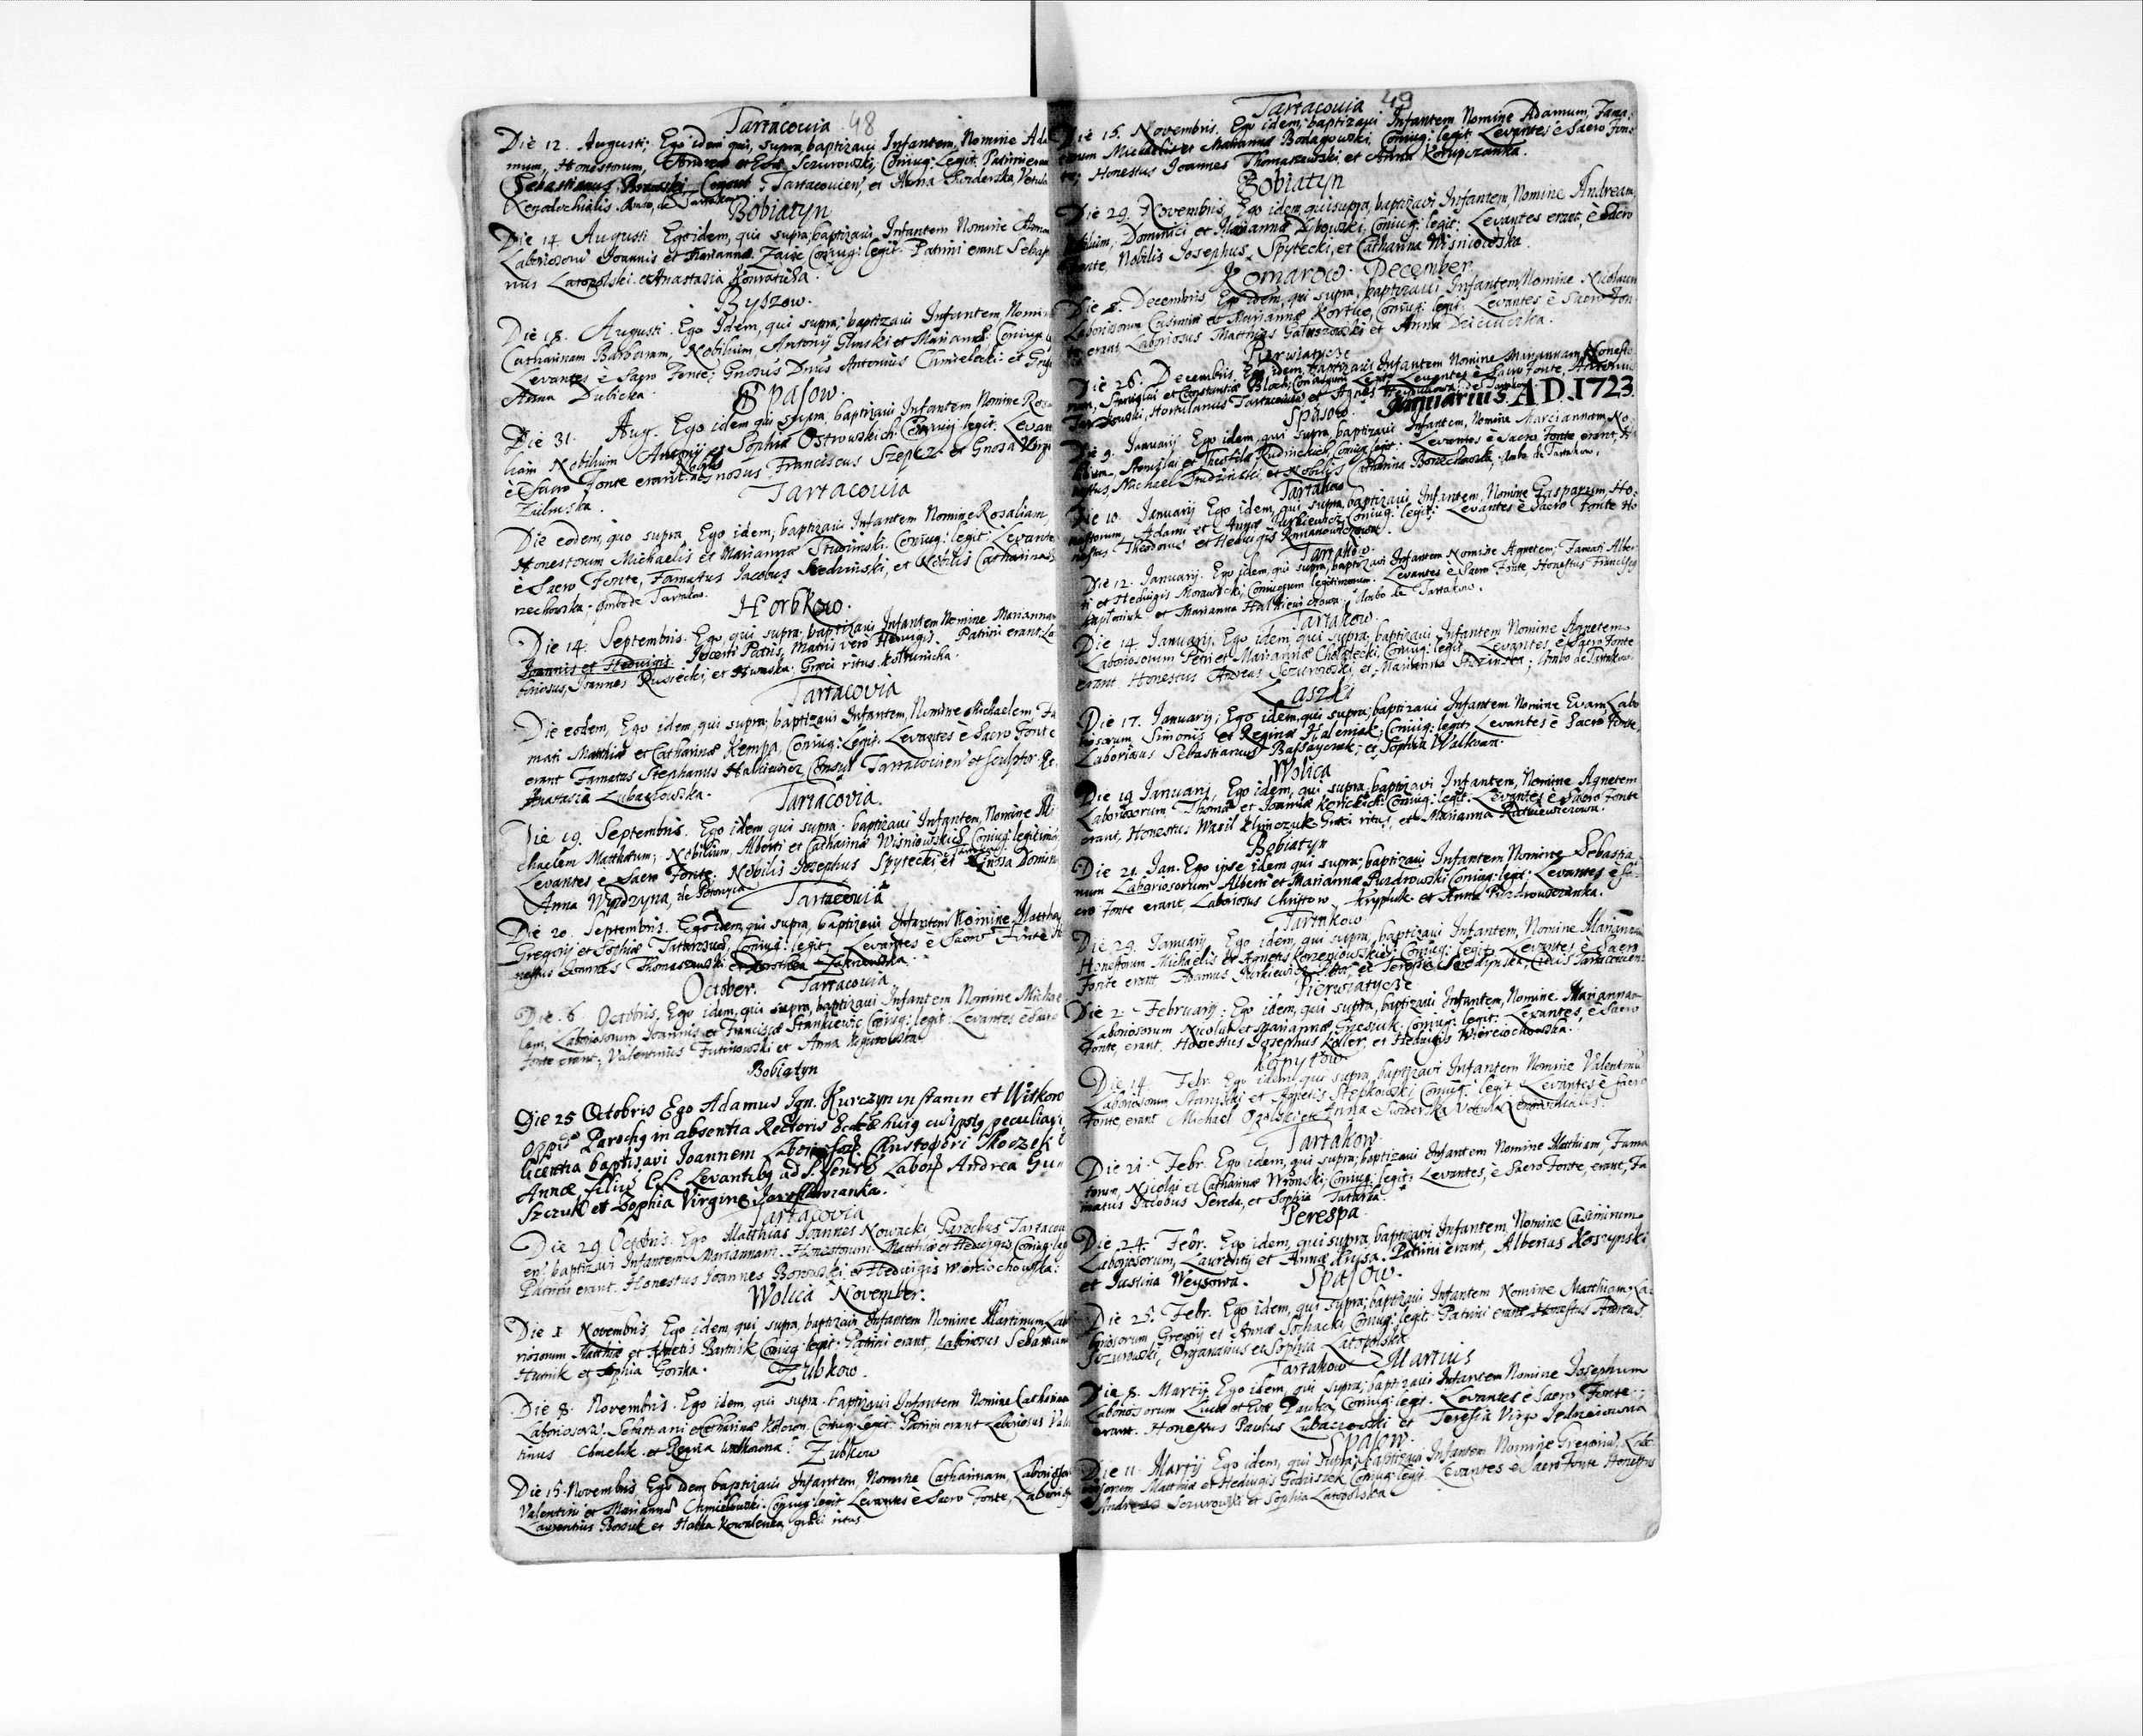 Tartacovia 48
Die 12. Augusti. Ego idem qui, supra, baptizavi Infantem, Nomine Ada
mum, Honestorum, Andreæ et Evæ Sczurowski, Coniug: Legit. Patrini erant
Sebastianus Tartacovien, et Anna Swiderska, Vetula
Xenodochialis. Ambo, de Tartakow
Bobiatyn
Die 14. Augusti. Ego idem, qui supra, baptizavi, Infantem Nomine
Laboriosorum Joannis et Mariannæ Zaiac Coniug: legit: Patrini erant Sebas
nus Latopolski et Anastasia
Byszow.
Die 18. Augusti. Ego Idem, qui supra, baptizavi Infantem Nomin
Catharinam Barbaram, Nobilium, Antonij Glinski et Mariannæ Coniug
Levantes è Sacro Fonte; Gnosus Dnus Antonius Chmielecki et
Anna Dubicka.
Spasow.
Die 31. Aug. Ego idem qui supra baptizavi Infantem Nomine Rosa
liam Nobilium Antonij et Sophiæ Ostrowskich Coniug legit: Levan
è Sacro Fonte erant Nobilis Franciscus Szepcz et Gnosa Virgo
Zulinska.
Tartacovia
Die eodem, quo supra, Ego idem, baptizavi Infantem Nomine Rosaliam,
Honestorum Michaelis et Mariannæ Studzinski Coniug: legit: Levante
è Sacro Fonte, Famatus Jacobus Sredzinski, et Nobilis Catharina
rzechowska, Ambo de Tartakow.
Horbkow.
Die 14. Septembris. Ego, qui supra, baptizavi Infantem Nomine Mariannam
Joannis et Hedvigis. Incerti Patris, Matris vero Hedvigis. Patrini erant, La
boriosus, Joannes Rusiecki, et Græci ritus.
Tartacovia
Die eodem, Ego idem qui supra, baptizavi Infantem, Nomine Michaelem Fa
mati Matthiæ et Catharinæ Kempa, Coniug: Legit. Levantes è Sacro Fonte
erant Famatus Stephanus Halkiewicz Consul Tartacovien et sculptor.
Anastasia Lubaczowska.
Tartacovia.
Die 19. Septembris. Ego idem qui supra baptizavi Infantem, Nomine Mi
chaelem Matthæum; Nobilium, Alberti et Catharinæ Wisniowskich Coniug: legitimor
Levantes è Sacro Fonte; Nobilis Josephus Spytecki, et Gnosa Domin
Anna
Tartacovia
Die 20. Septembris. Ego idem, qui supra, baptizavi Infantem Nomine Matthæ
Gregorij et Sophiæ Coniug: legit: Levantes è Sacro Fonte Ho
nestus Joannes Thomaszewski et Dorothea
October. Tartacovia
Die 6. Octobris, Ego idem, qui supra, baptizavi Infantem Nomine Michae
lem, Laboriosorum Joannis et Franciscæ Stankiewic Coniug: legit: Levantes è Sacro
Fonte erant, Valentinus Futinowski et Anna
Bobiatyn
Die 25 Octobris Ego Adamus Ign. Kurczyn in stanin et Witkow
Parochus in absentia Rectoris Ecclæ huius cuius peculiari
licentia baptisavi Joannem Christophori Skoczek
Annæ filium Levantibus ad S. Fonte Andrea
Szczuk et Zophia Virgine Jaroslawzanka.
Tartacovia
Die 29. Octobris. Ego Matthias Joannes Nowacki Parochus Tartacov
en. baptizavi Infantem Mariannam. Honestorum Matthiæ et Hedvigis Coniug: leg
Patrini erant. Honestus Joannes Borowski et Hedvigis Wierciochowska.
Wolica November.
Die 1 Novembris. Ego idem, qui supra, baptizavi Infantem Nomine Martinum, Lab
riosorum Matthiæ et Agnetis Bartnik Coniug: legit: Patrini erant, Laboriosus Sebastian
Hutnik et Sophia Gorska.
Zubkow.
Die 8. Novembris. Ego idem, qui supra baptizavi Infantem Nomine Catharinam
Laboriosor. Sebastiani et Catharinæ Coniug: Legit: Patrini erant Laboriosus Valen
tinus Chmelik et Regina
Zubkow
Die 15. Novembris. Ego idem baptizavi Infantem, Nomine Catharinam, Laboriosor
Valentini et Mariannæ Chmielewski Coniug: legit Levantes è Sacro Fonte, Laborios
Laurentius et Kowalenka græci ritus
Tartacovia 49
Die 15. Novembris. Ego idem, baptizavi Infantem Nomine Adamum, Fama
torum Michaelis et Mariannæ Coniug: legit Levantes è Sacro Fon
te; Honestus Joannes Thomaszewski et Anna
Bobiatyn
Die 29. Novembris. Ego idem, qui supra, baptizavi Infantem, Nomine Andream,
Nobilium, Dominici et Mariannæ Dybowski, Coniug: legit: Levantes erant, è Sacro
Fonte, Nobilis Josephus Spytecki, et Catharina Wisniowska.
Komarow. December
Die 8. Decembris. Ego idem, qui supra, baptizavi Infantem Nomine Nicolaum
Laboriosorum Casimiri et Mariannæ Coniug: legit: Levantes è Sacro Fon
te erant Laboriosus Matthias et Anna
Pierwiatycze
Die 26. Decembris, Ego idem, baptizavi Infantem Nomine Mariannam Honesto
rum, Stanislai et Constantiæ Bloch, Coniugum Legit. Levantes è Sacro Fonte, Antonius
Hortulanus Tartacovien et Agnes de Tartakow
Januarius A D. 1723
Spasow.
Die 9. Januarij Ego idem, qui supra, baptizavi Infantem, Nomine Mariannam, No
bilium, Stanislai et Theofilæ Rudnickich Coniug: legit: Levantes è Sacro Fonte erant, Ho
nestus, Michael Studzinski et Nobilis Catharina Borzechowska, Ambo de Tartakow.
Tartakow
Die 10. Januarij Ego idem, qui supra, baptizavi Infantem, Nomine Gasparum, Ho
nestorum, Adami et Annæ Jurkiewicz, Coniug: legit: Levantes è Sacro Fonte Ho
nestus Theodorus et Hedvigis Romanowiczowa.
Tartakow.
Die 12. Januarij. Ego idem, qui supra, baptizavi Infantem Nomine Agnetem, Famati Alber
ti et Hedvigis Morawicki, Coniugum legitimorum. Levantes è Sacro Fonte, Honestus Franciscus
et Marianna Halkiewiczowa, Ambo de Tartakow.
Tartakow.
Die 14. Januarij. Ego idem, qui supra, baptizavi Infantem Nomine Agnetem
Laboriosorum Petri et Mariannæ Coniug: legit. Levantes, è Sacro Fonte
erant Honestus Andreas Sczurowski et Marianna; Ambo de Tartakow
Laszki
Die 17. Januarij; Ego idem, qui supra, baptizavi Infantem Nomine Evam, Labo
riosorum, Simonis et Reginæ Haleniak, Coniug: legit; Levantes è Sacro Fonte,
Laboriosus Sebastianus et Sophia
Wolica
Die 19 Januarij, Ego idem, qui supra, baptizavi Infantem, Nomine Agnetem
Laboriosorum Thomæ et Joannæ Coniug: legit: Levantes è Sacro Fonte
erant, Honestus Wasil Græci ritus, et Marianna
Bobiatyn
Die 21. Jan. Ego ipse idem qui supra, baptizavi Infantem Nomine Sebastia
num Laboriosorum Alberti et Mariannæ Puzdrowski Coniug: legit: Levantes è Sa
cro Fonte erant, Laboriosus et Anna
Tartakow
Die 29. Januarij Ego idem, qui supra, baptizavi Infantem, Nomine Mariannam
Honestorum Michaelis et Agnetis Korzeniowskich; Coniug: legit: Levantes è Sacro
Fonte erant Jurkiewicz et Teresia Cives Tartacovien.
Pierwiatycze
Die 2. Februarij. Ego idem, qui supra, baptizavi Infantem, Nomine Mariannam
Laboriosorum Nicolai et Mariannæ Coniug: legit: Levantes, è Sacro
Fonte, erant, Honestus Josephus Koller, et Hedvigis Wierciochowska.
Kopytow
Die 14. Febr. Ego idem, qui supra, baptizavi Infantem Nomine Valentinum
Laboriosorum Stanislai et Agnetis Stepkowski Coniug: legit Levantes è Sacro
Fonte, erant Michael et Anna Swiderska Vetula Xenodochialis.
Tartakow.
Die 21. Febr. Ego idem, qui supra, baptizavi Infantem Nomine Matthiam, Fama
torum, Nicolai et Catharinæ Wronski; Coniug: legit; Levantes, è Sacro Fonte, erant, Fa
matus Jacobus Sereda, et Sophia
Perespa
Die 24. Febr. Ego idem, qui supra, baptizavi Infantem, Nomine Casimirum
Laboriosorum, Laurentij et Annæ Patrini erant, Albertus Koszynski
et Justina Weysowa.
Spasow.
Die 25. Febr. Ego idem, qui supra, baptizavi Infantem Nomine Matthiam, La
boriosorum Gregorij et Annæ Sochacki Coniug: legit: Patrini erant Honestus Andreas
Sczurowski, Organarius et Sophia Latopolska
Tartakow Martius
Die 8. Martij Ego idem, qui supra, baptizavi Infantem Nomine Josephum
Laboriosorum Lucæ et Evæ Coniug: legit: Levantes è Sacro Fonte
erant. Honestus Paulus Lubaczowski et Teresia Virgo
Spasow.
Die 11. Martij Ego idem, qui supra, baptizavi Infantem Nomine Gregorium Labo
riosorum Matthiæ et Hedvigis Coniug: legit. Levantes è Sacro Fonte Honestus
Andreas Sczurowski et Sophia Latopolska